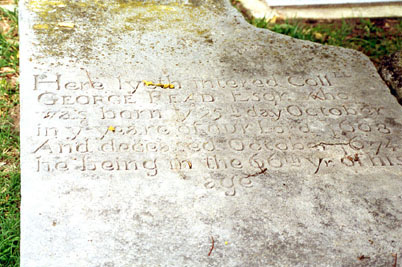 Here lyeth interred Coll
GEORGE READ Esqr who
was born ye 25 day October
in ye year of our Lord 1608
And deceased October 1674
he being in the 66th yr of his
age